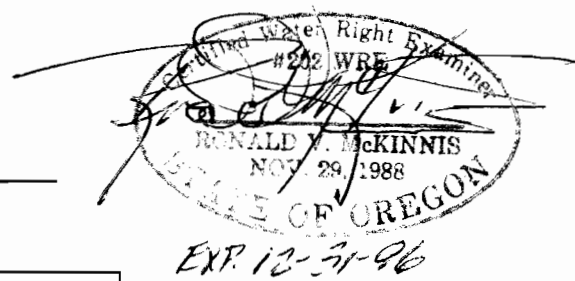 Certified Water Right Examiner
#202 WRE
RONALD V. McKINNIS
NOV. 29, 1988
STATE OF OREGON
EXP. 12-31-96